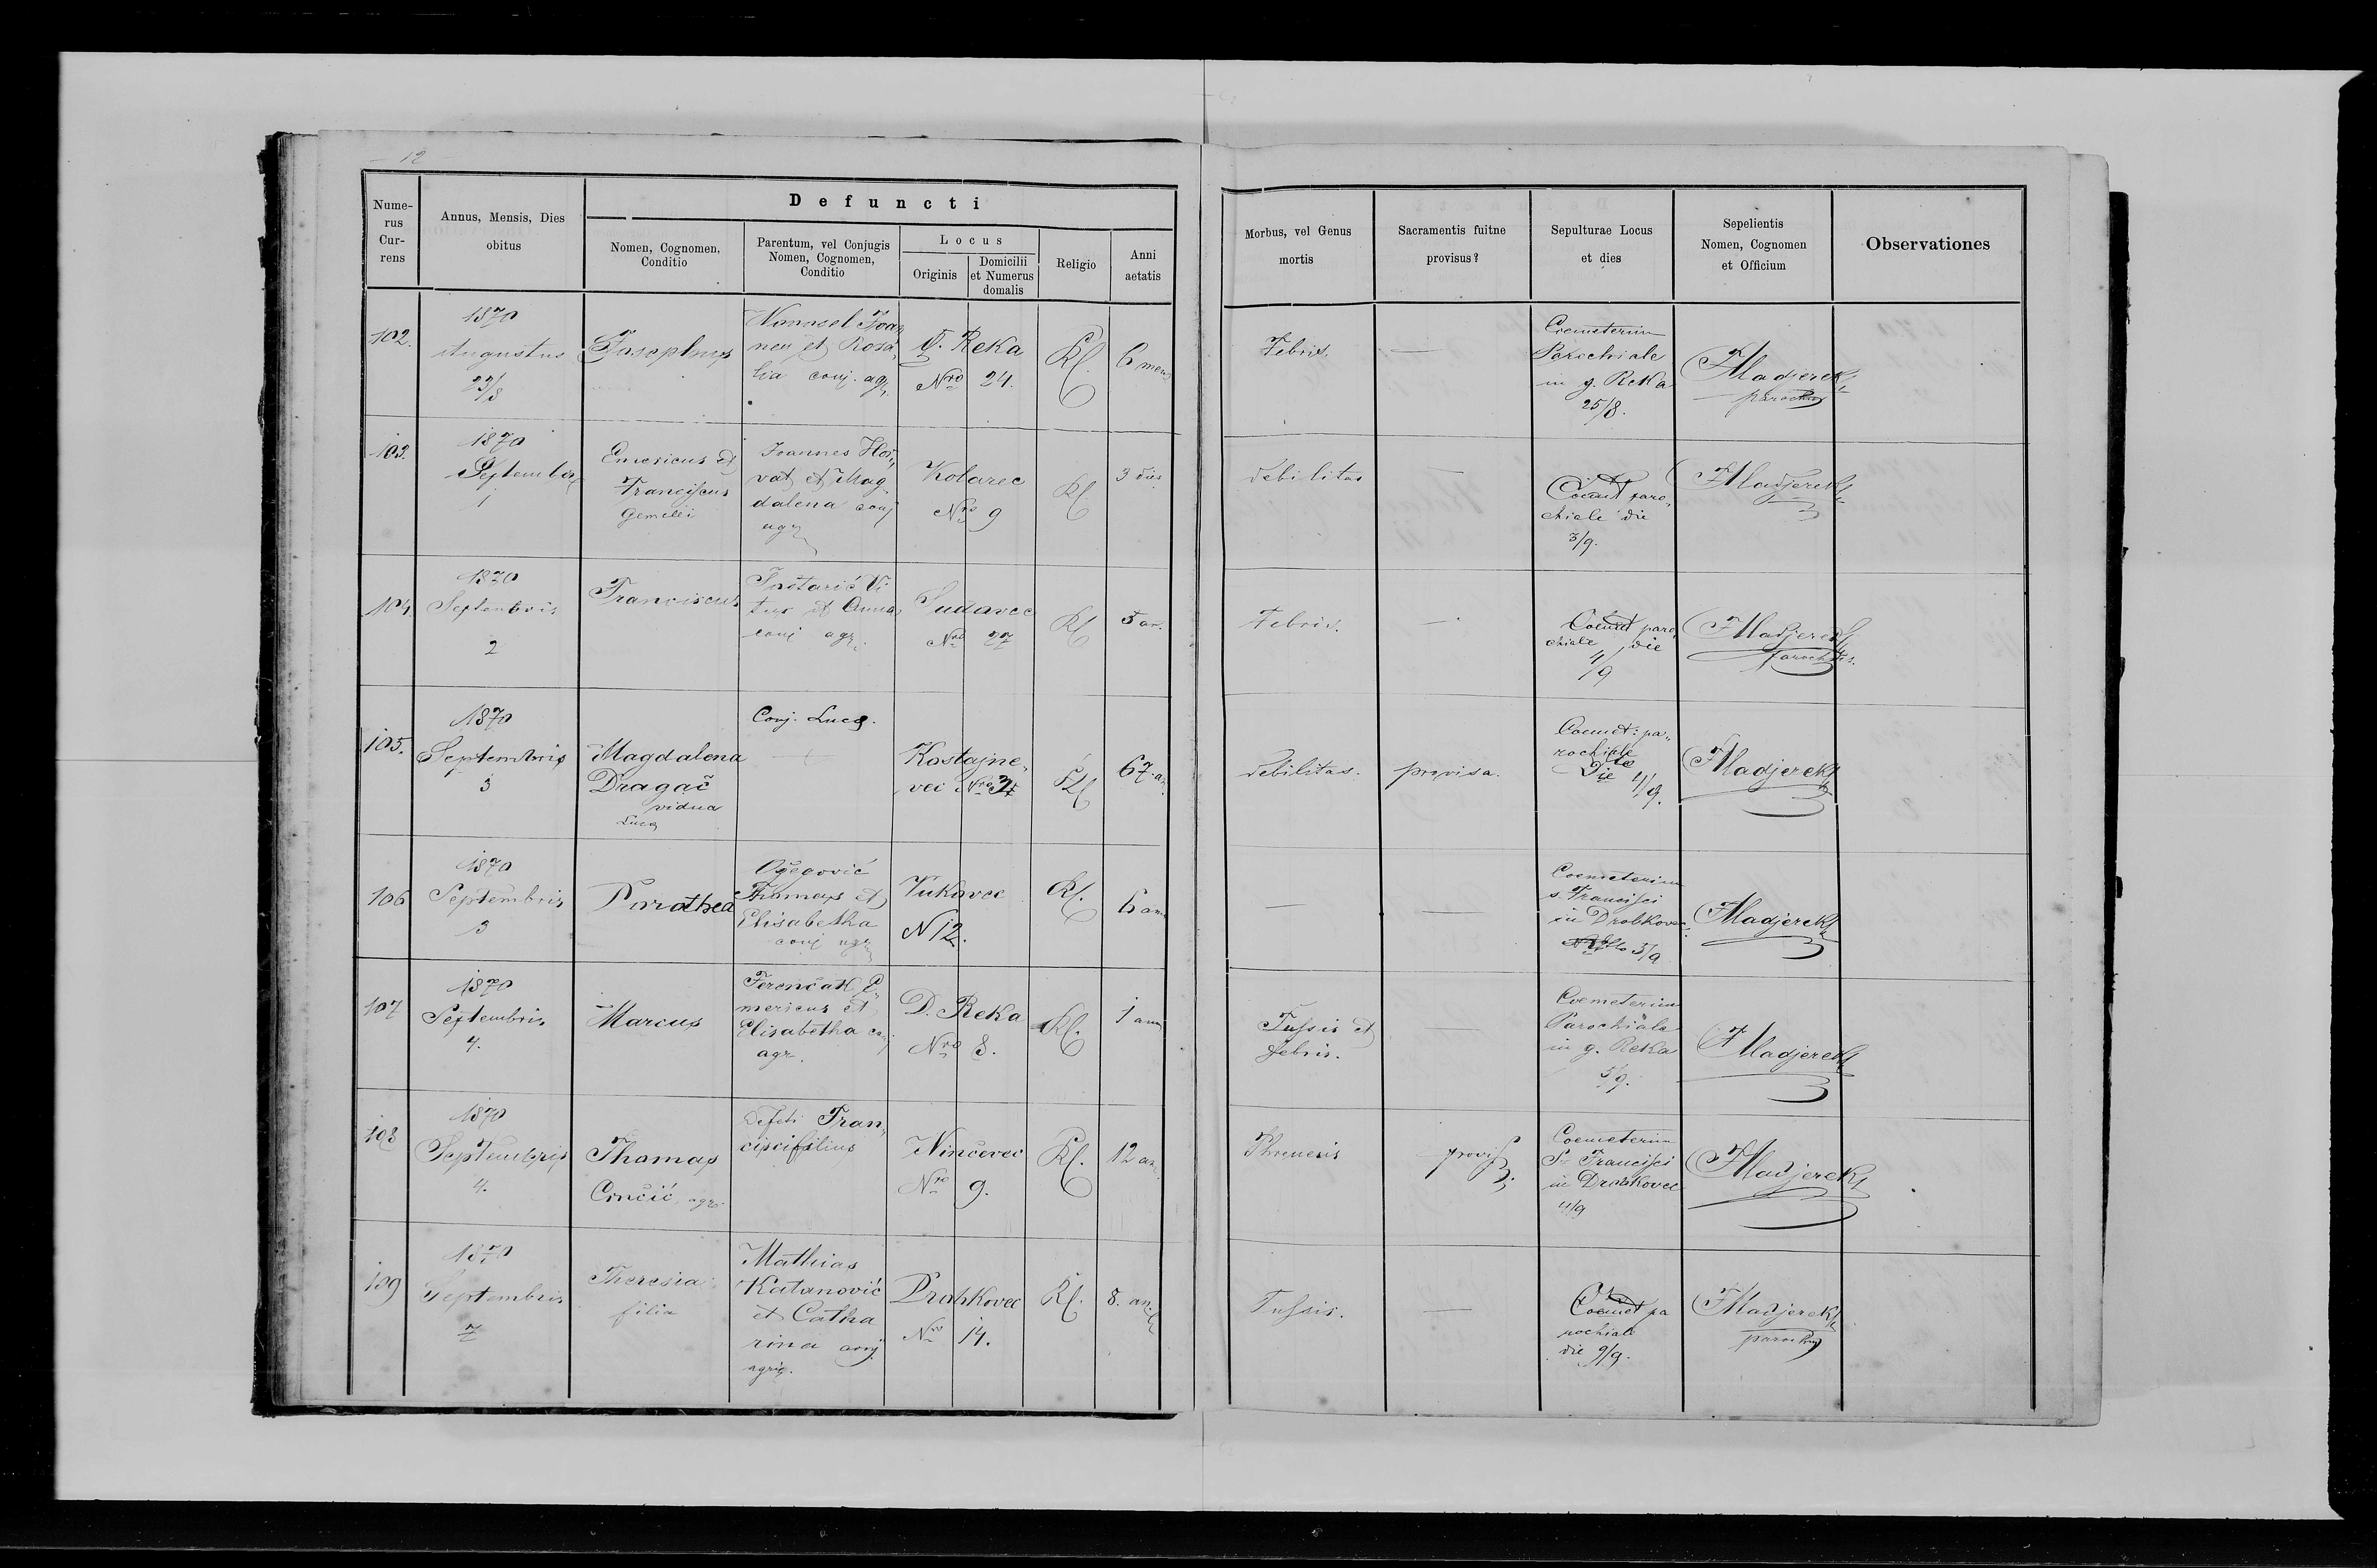 12
Defuncti
Nume-
rus
Cur-
rens
Annus, Mensis, Dies
obitus
Nomen, Cognomen,
Conditio
Parentum, vel Conjugis
Nomen, Cognomen,
Conditio
Locus
Originis
Domicilii
et Numerus
domalis
Religio
Anni
aetatis
Morbus, vel Genus
mortis
Sacramentis fuitne
provisus?
Sepulturae Locus
et dies
Sepelientis
Nomen, Cognomen
et Officium
Observationes
102.
1870
Augustus
23/8
Josephus
Joan
nes et Rosa
lia conj. agr.
G. Reka
Nro 24.
6 mens
Febris.
—
Coemeterium
Parochiale
in g. Reka
25/8.
FMadjerek
parochus
103.
1870
Septembris
1
Emericus et
Franciscus
Gemelli
Joannes Hor„
vat et Mag
dalena conj
agr
Kolarec
Nro 9
3 dies
debilitas
—
Coemet paro„
chiale die
3/9.
FMadjerek
104.
1870
Septembris
2
Franciscus
Vi
tus et Anna
conj agr.
Sudovec
Nro 27
5 an.
Febris.
—
Coemet paro„
chiale die
4/9
FMadjerek
parochus.
105.
1870
Septembris
3
Magdalena
Dragač
vidua
Luca
Conj. Luca.
Kostajne„
vci Nro
67 an.
debilitas.
provisa.
Coemet: pa„
rochiale
Die 4/9.
FMadjerek
106
1870
Septembris
3
Dorothea
Ožegović
Thomas et
Elisabetha
conj agr
Vukovec
N 12.
6 ann
—
—
Coemeterium
s. Francisci
in Drobkovec
3/9
FMadjerek
107
1870
Septembris
4.
Marcus
Ferenčak E„
mericus et
Elisabetha conj
agr.
D. Reka
Nro 8.
1 ann
Tussis et
febris.
—
Coemeterium
Parochiale
in g. Reka
5/9.
FMadjerek
108
1870
Septembris
4.
Thomas
Crnčić agr.
Defcti Fran„
cisci filius
Ninčevec
Nro 9.
12 an.
Phrenesis
provis
Coemeterium
S. Francisci
in Drobkovec
4/9
FMadjerek
109
1870
Septembris
7
Theresia
filia
Mathias
Katanović
et Catha
rina conj
agric.
Drobkovec
Nro 14.
8. an.
Tussis.
—
Coemet pa
rochiale
die 9/9.
FMadjerek
parochus